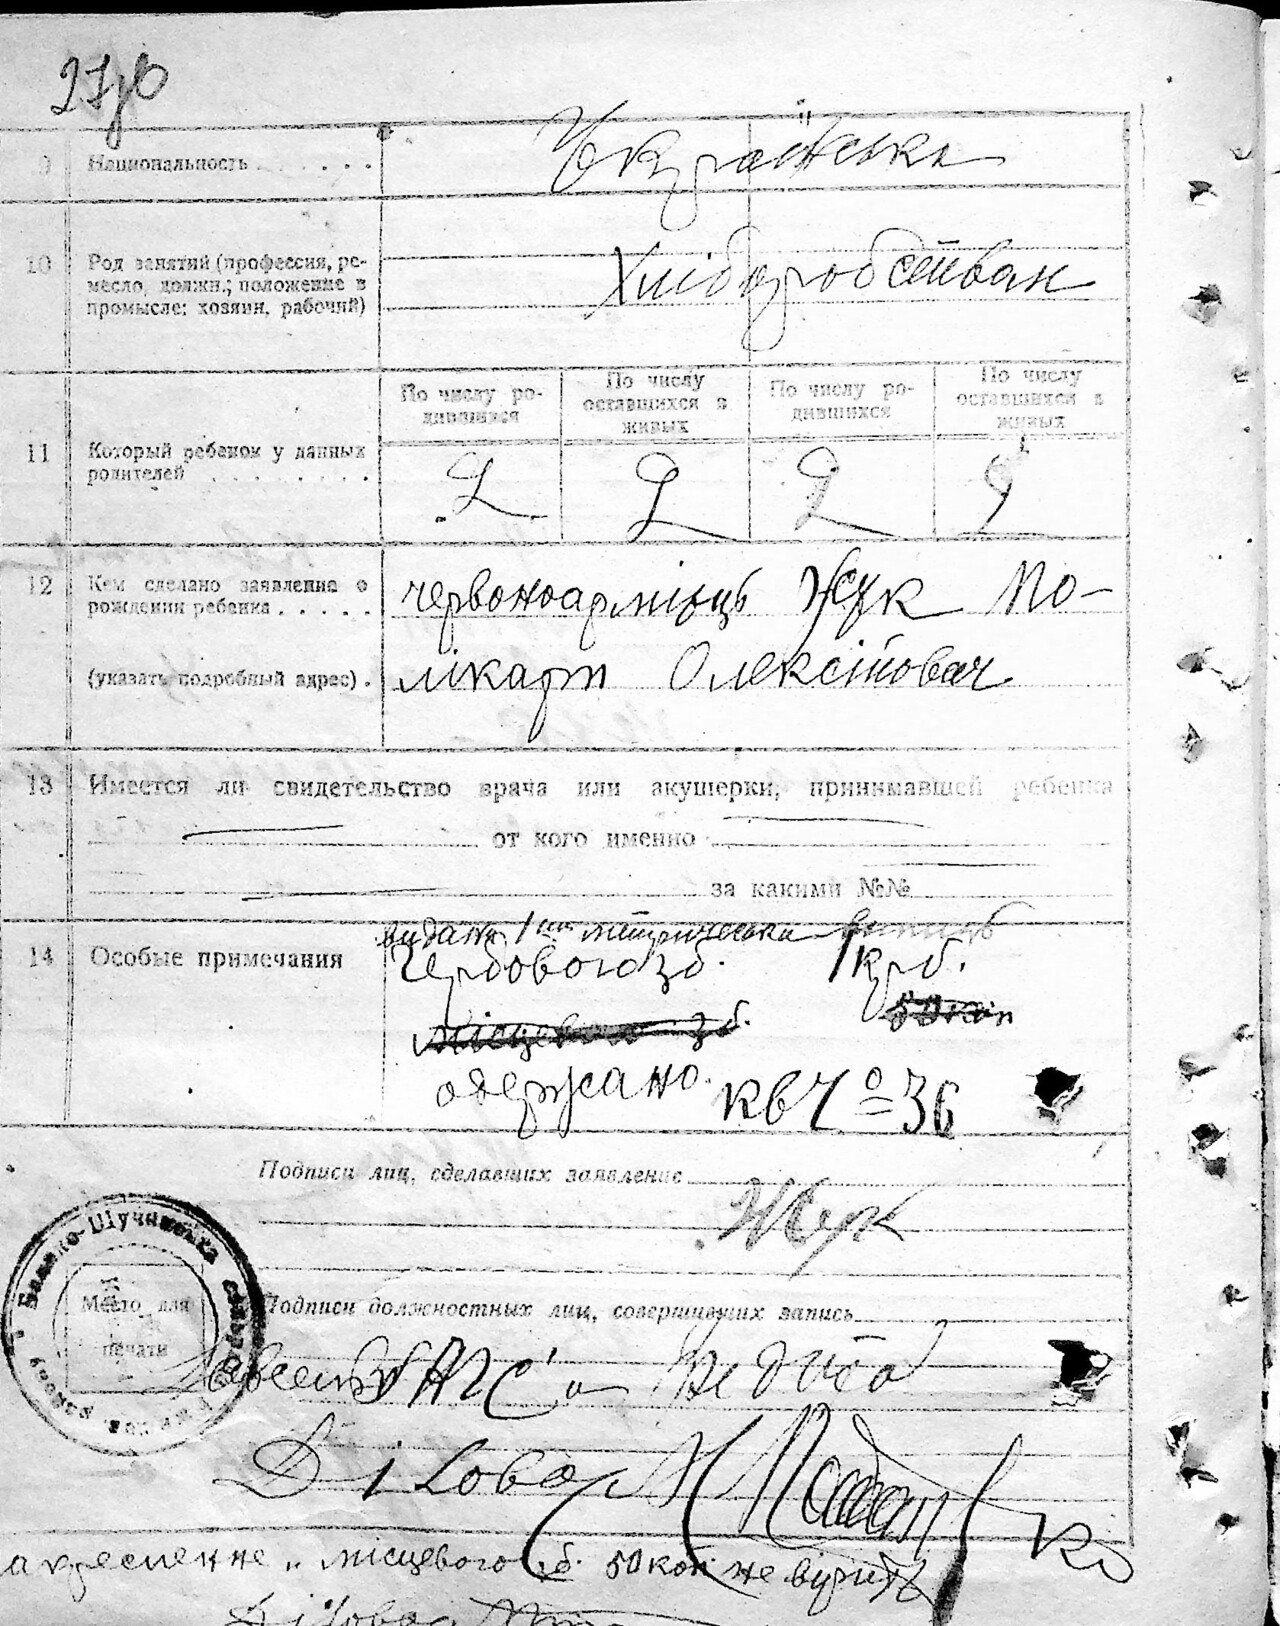 9 Национальность . . . . . . Українська
10 Род занятий (профессия, ре-
месло, должн.; положение в
промысле: хозяин, рабочий)
Хлібороб
По числу ро-
дившихся
По числу
оставшихся в
живых
По числу ро-
дившихся
По числу
оставшихся в
живых
11 Который ребенок у данных
родителей . . . . . . .
2 2 2 2
12 Кем сделано заявление о
рождении ребенка . . . . .
червоноармієць Жук По-
(указать подробный адрес) .
лікарп
13 Имеется ли свидетельство врача или акушерки, принимавшей ребенка
от кого именно
за какими №№
видана 1
14 Особые примечания
Гербового зб. 1 крб.
місцевого зб. 50 коп
одержано. кв Ч 36
Подписи лиц, сделавших заявление
Жук
Место для
печати
Подписи должностных лиц, совершивших запись
ЗАГС'а
Діловод
місцевого зб. 50 коп не